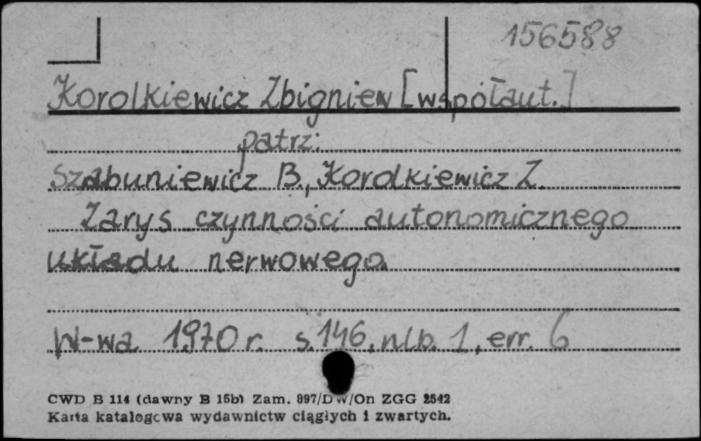 156588
Korolkiewicz Zbigniew [współaut.]
patrz:
Szabuniewicz B., Korolkiewicz Z.
Zarys czynności autonomicznego
układu nerwowego.
W-wa 1970 r. s. 146, nlb. 1, err. 6
CWD B 114 (dawny B 15b) Zam. 997/DW/On ZGG 2542
Karta katalogowa wydawnictw ciągłych i zwartych.